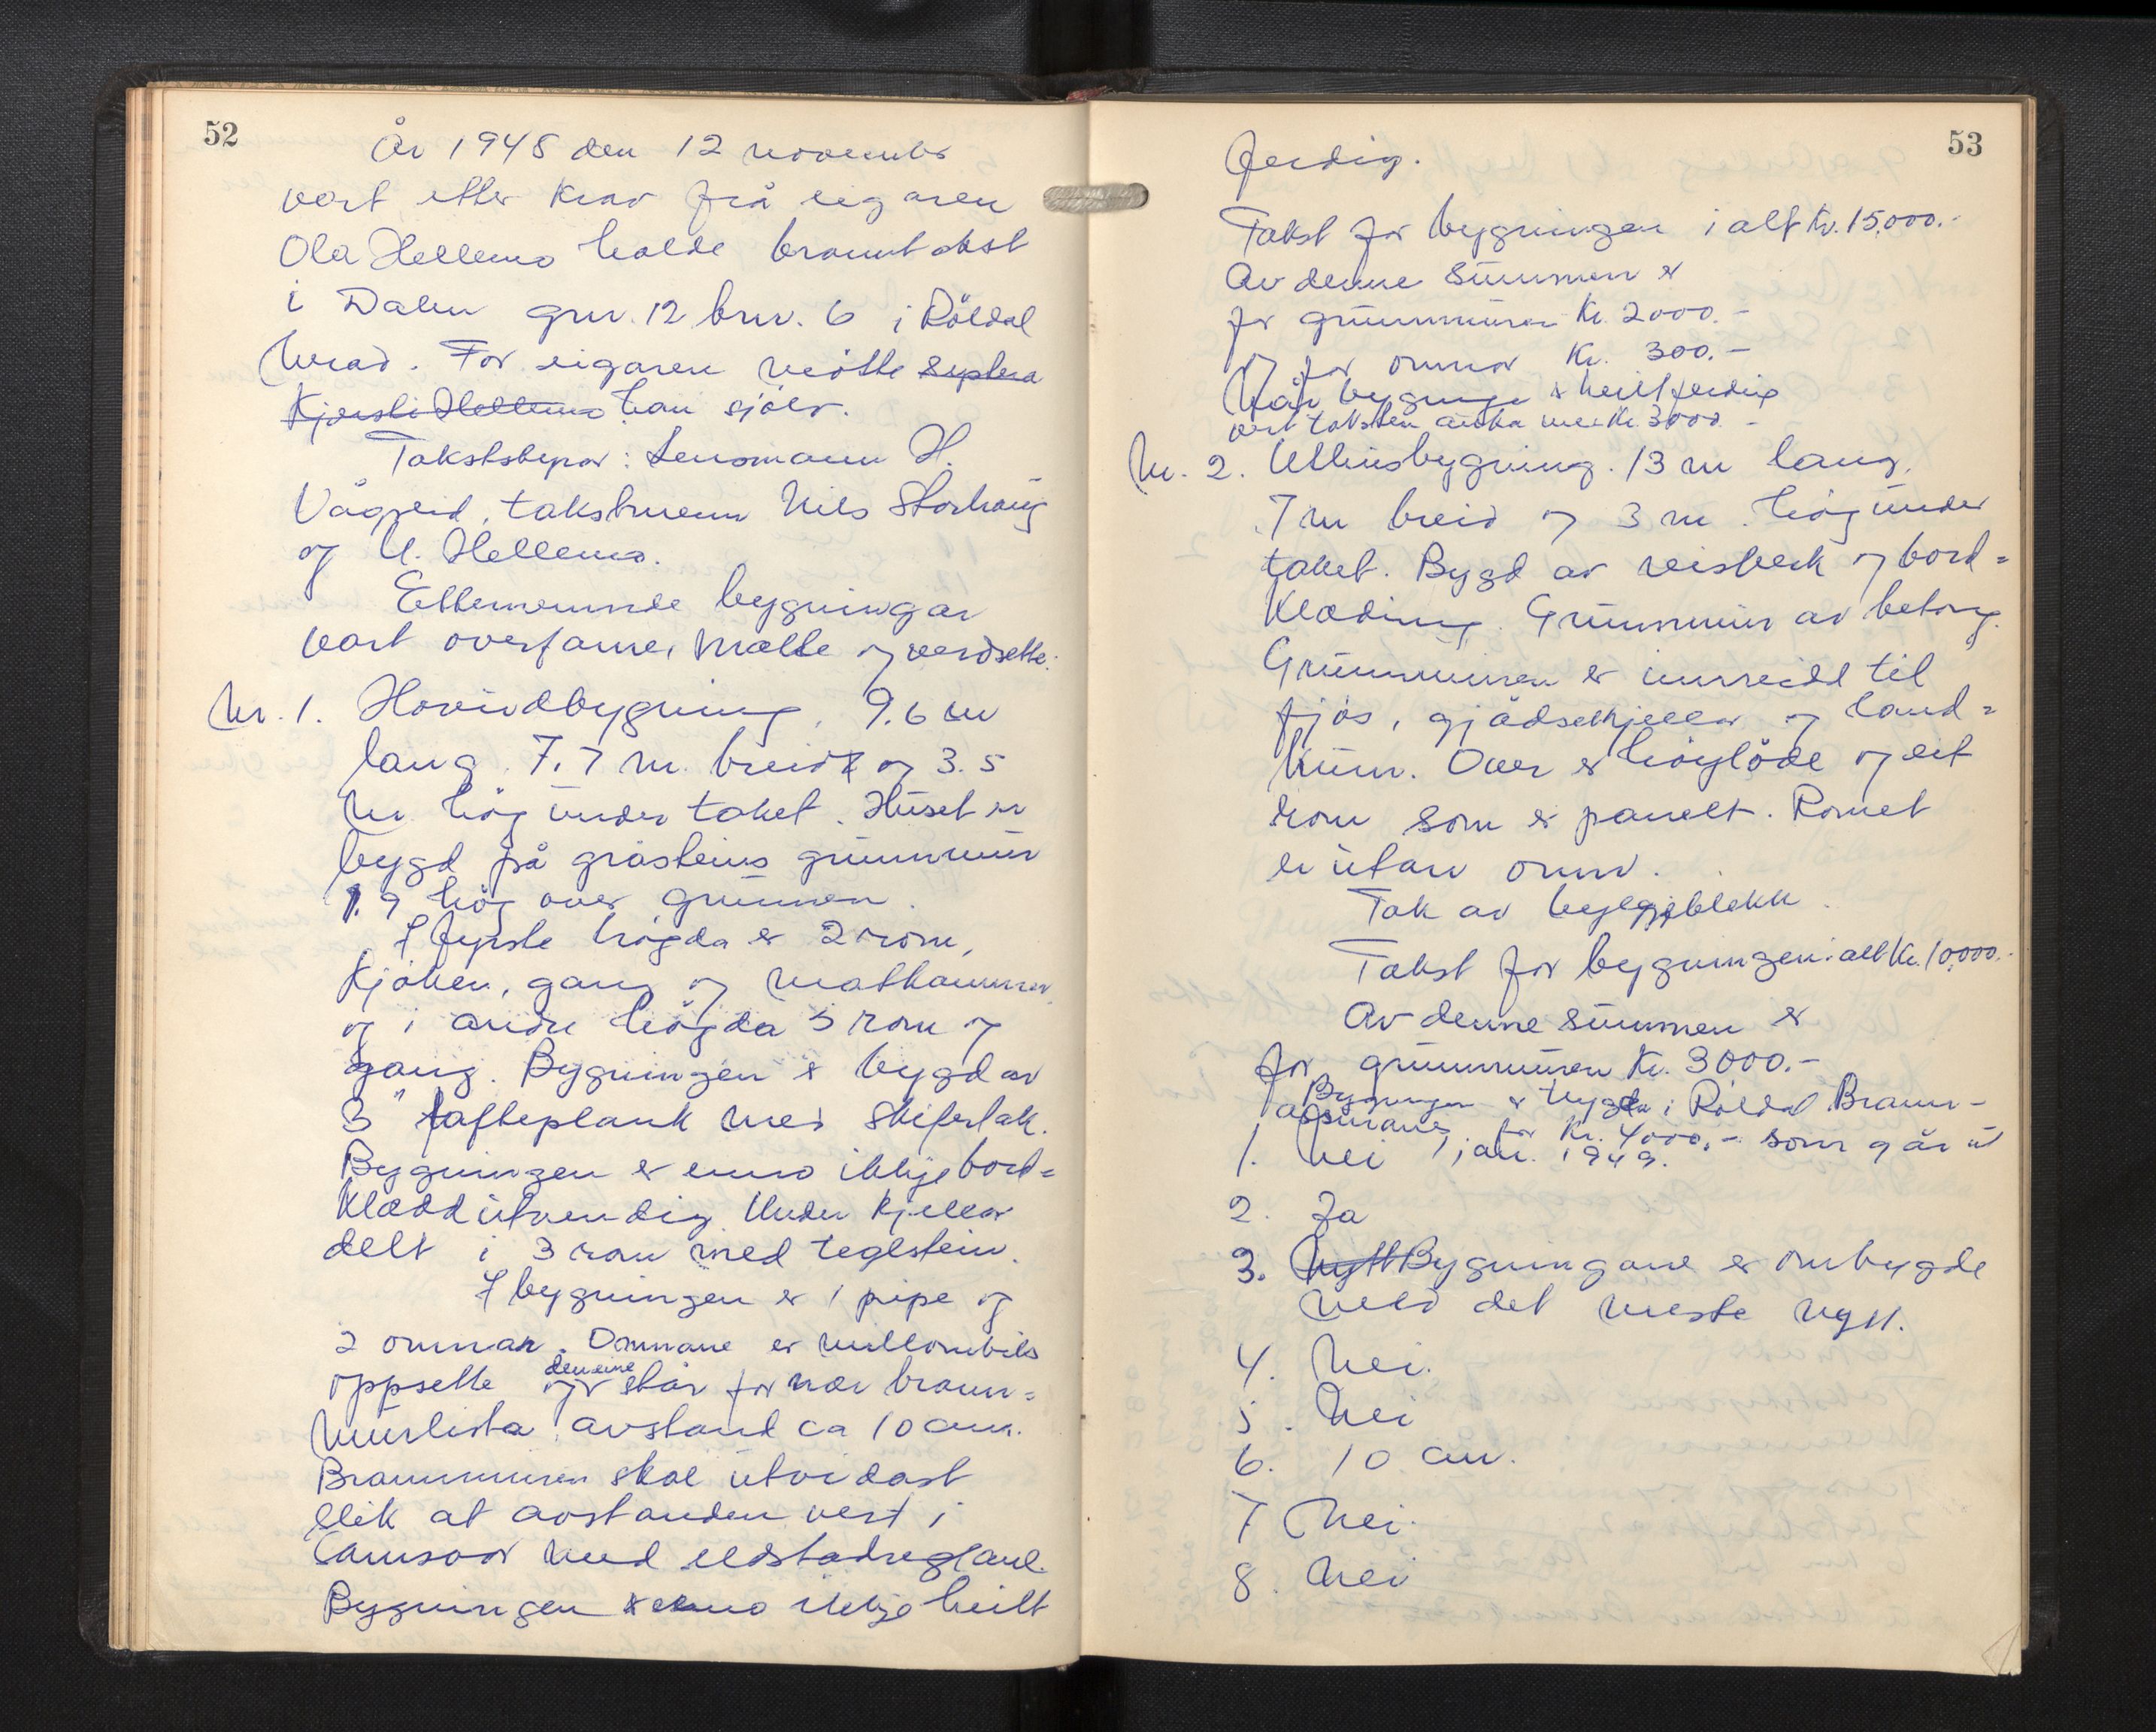 52
År 1948 den 12 november
vart etter krav frå eigaren
Ola Hellemo halde branntakst
i Dalen gnr. 12 bnr. 6 i Röldal
herad. For eigaren møtte
Kjersti Hellemo han sjölv.
Takststyrar: Lensmann H.
Vågreid, takstmenn Nils Storhaug
og N. Hellemo.
Etternemnde bygningar
vart overfarne, mælte og verdsette:
Nr. 1. Hovudbygning, 9.6 m
lang. 7.7 m. breid og 3.5
m hög under taket. Huset er
bygd på gråsteins grunnmur
1.9 hög over grunnen.
I fyrste högda er 2 rom,
kjöken, gang og matkammer
og i andre högda 3 rom og
gang. Bygningen er bygd av
3" lafteplank med skifertak.
Bygningen er enno ikkje bord=
klædd utvendig. Under kjellar
delt i 3 rom med teglstein.
I bygningen er 1 pipe og
2 omnar. Omnane er millombils
oppsette og den eine står for nær brann=
murlista, avstand ca 10 cm.
Brannmuren skal utvidast
slik at avstanden vert i
samsvar med eldstadreglane.
Bygningen er enno ikkje heilt
53
ferdig.
Takst for bygningen i alt kr. 15.000.-
Av denne summen er
for grunnmuren Kr. 2000.-
og for omnar Kr. 300.-
Når bygningen er heilt ferdig
vert taksten auka med Kr. 3000.-
Nr. 2. Uthusbygning. 13 m lang,
7 m breid og 3 m. hög under
taket. Bygd av reisverk og bord=
klædning. Grunnmur av betong.
Grunnmuren er innreidd til
fjös, gjödselkjellar og land=
kum. Over er höyløde og eit
rom som er panelt. Romet
er utan omn.
Tak av bylgjeblekk.
Takst for bygningen i alt Kr. 10.000.-
Av denne summen er
for grunnmuren Kr. 3000.-
Bygningen er trygda i Röldal Brann-
assurance for Kr. 4000.- som går ut
1. Nei 1 jan. 1949.
2. Ja
3. Nytt Bygningane er ombygde
med det meste nytt.
4. Nei.
5. Nei
6. 10 cm.
7 Nei.
8. Nei